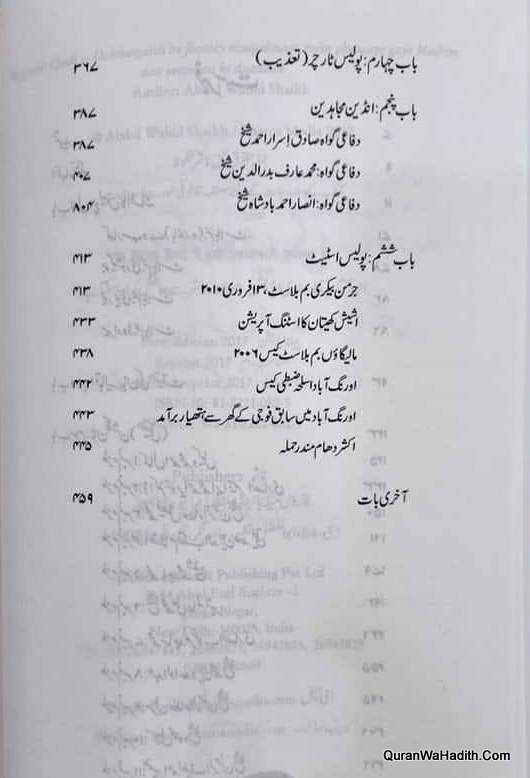 باب چہارم: پولیس ٹارچر (تعذیب) ۳۶۷
باب پنجم: انڈین مجاہدین ۳۸۷
دفاعی گواہ صادق اسرار احمد شیخ ۳۸۷
دفاعی گواہ: محمد عارف بدرالدین شیخ ۴۰۷
دفاعی گواہ: انصار احمد بادشاہ شیخ ۸۰۴
باب ششم: پولیس اسٹیٹ ۴۱۳
جرمن بیکری بم بلاسٹ، ۱۳ فروری ۲۰۱۰ ۴۱۳
اشیش کھیتان کا اسٹنگ آپریشن ۴۳۳
مالیگاؤں بم بلاسٹ کیس ۲۰۰۶ ۴۳۸
اورنگ آباد اسلحہ ضبطی کیس ۴۴۲
اورنگ آباد میں سابق فوجی کے گھر سے ہتھیار برآمد ۴۴۳
اکشر دھام مندر حملہ ۴۴۵
آخری بات ۴۵۹
QuranWaHadith.Com